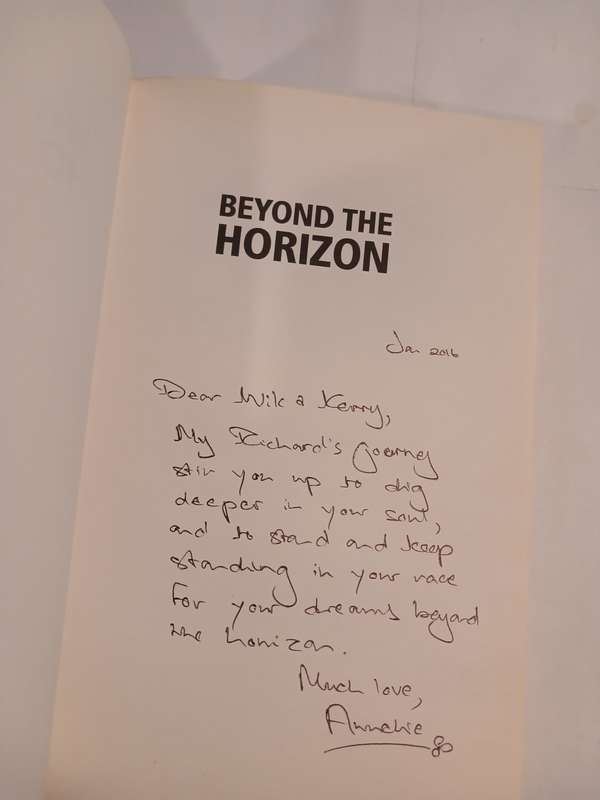 BEYOND THE
HORIZON
Jan 2016
Dear Wik & Kerry,
My Richard's journey
stir you up to dig
deeper in your soul,
and to stand and keep
standing in your race
for your dreams beyond
the horizon.
Much love,
Annchie